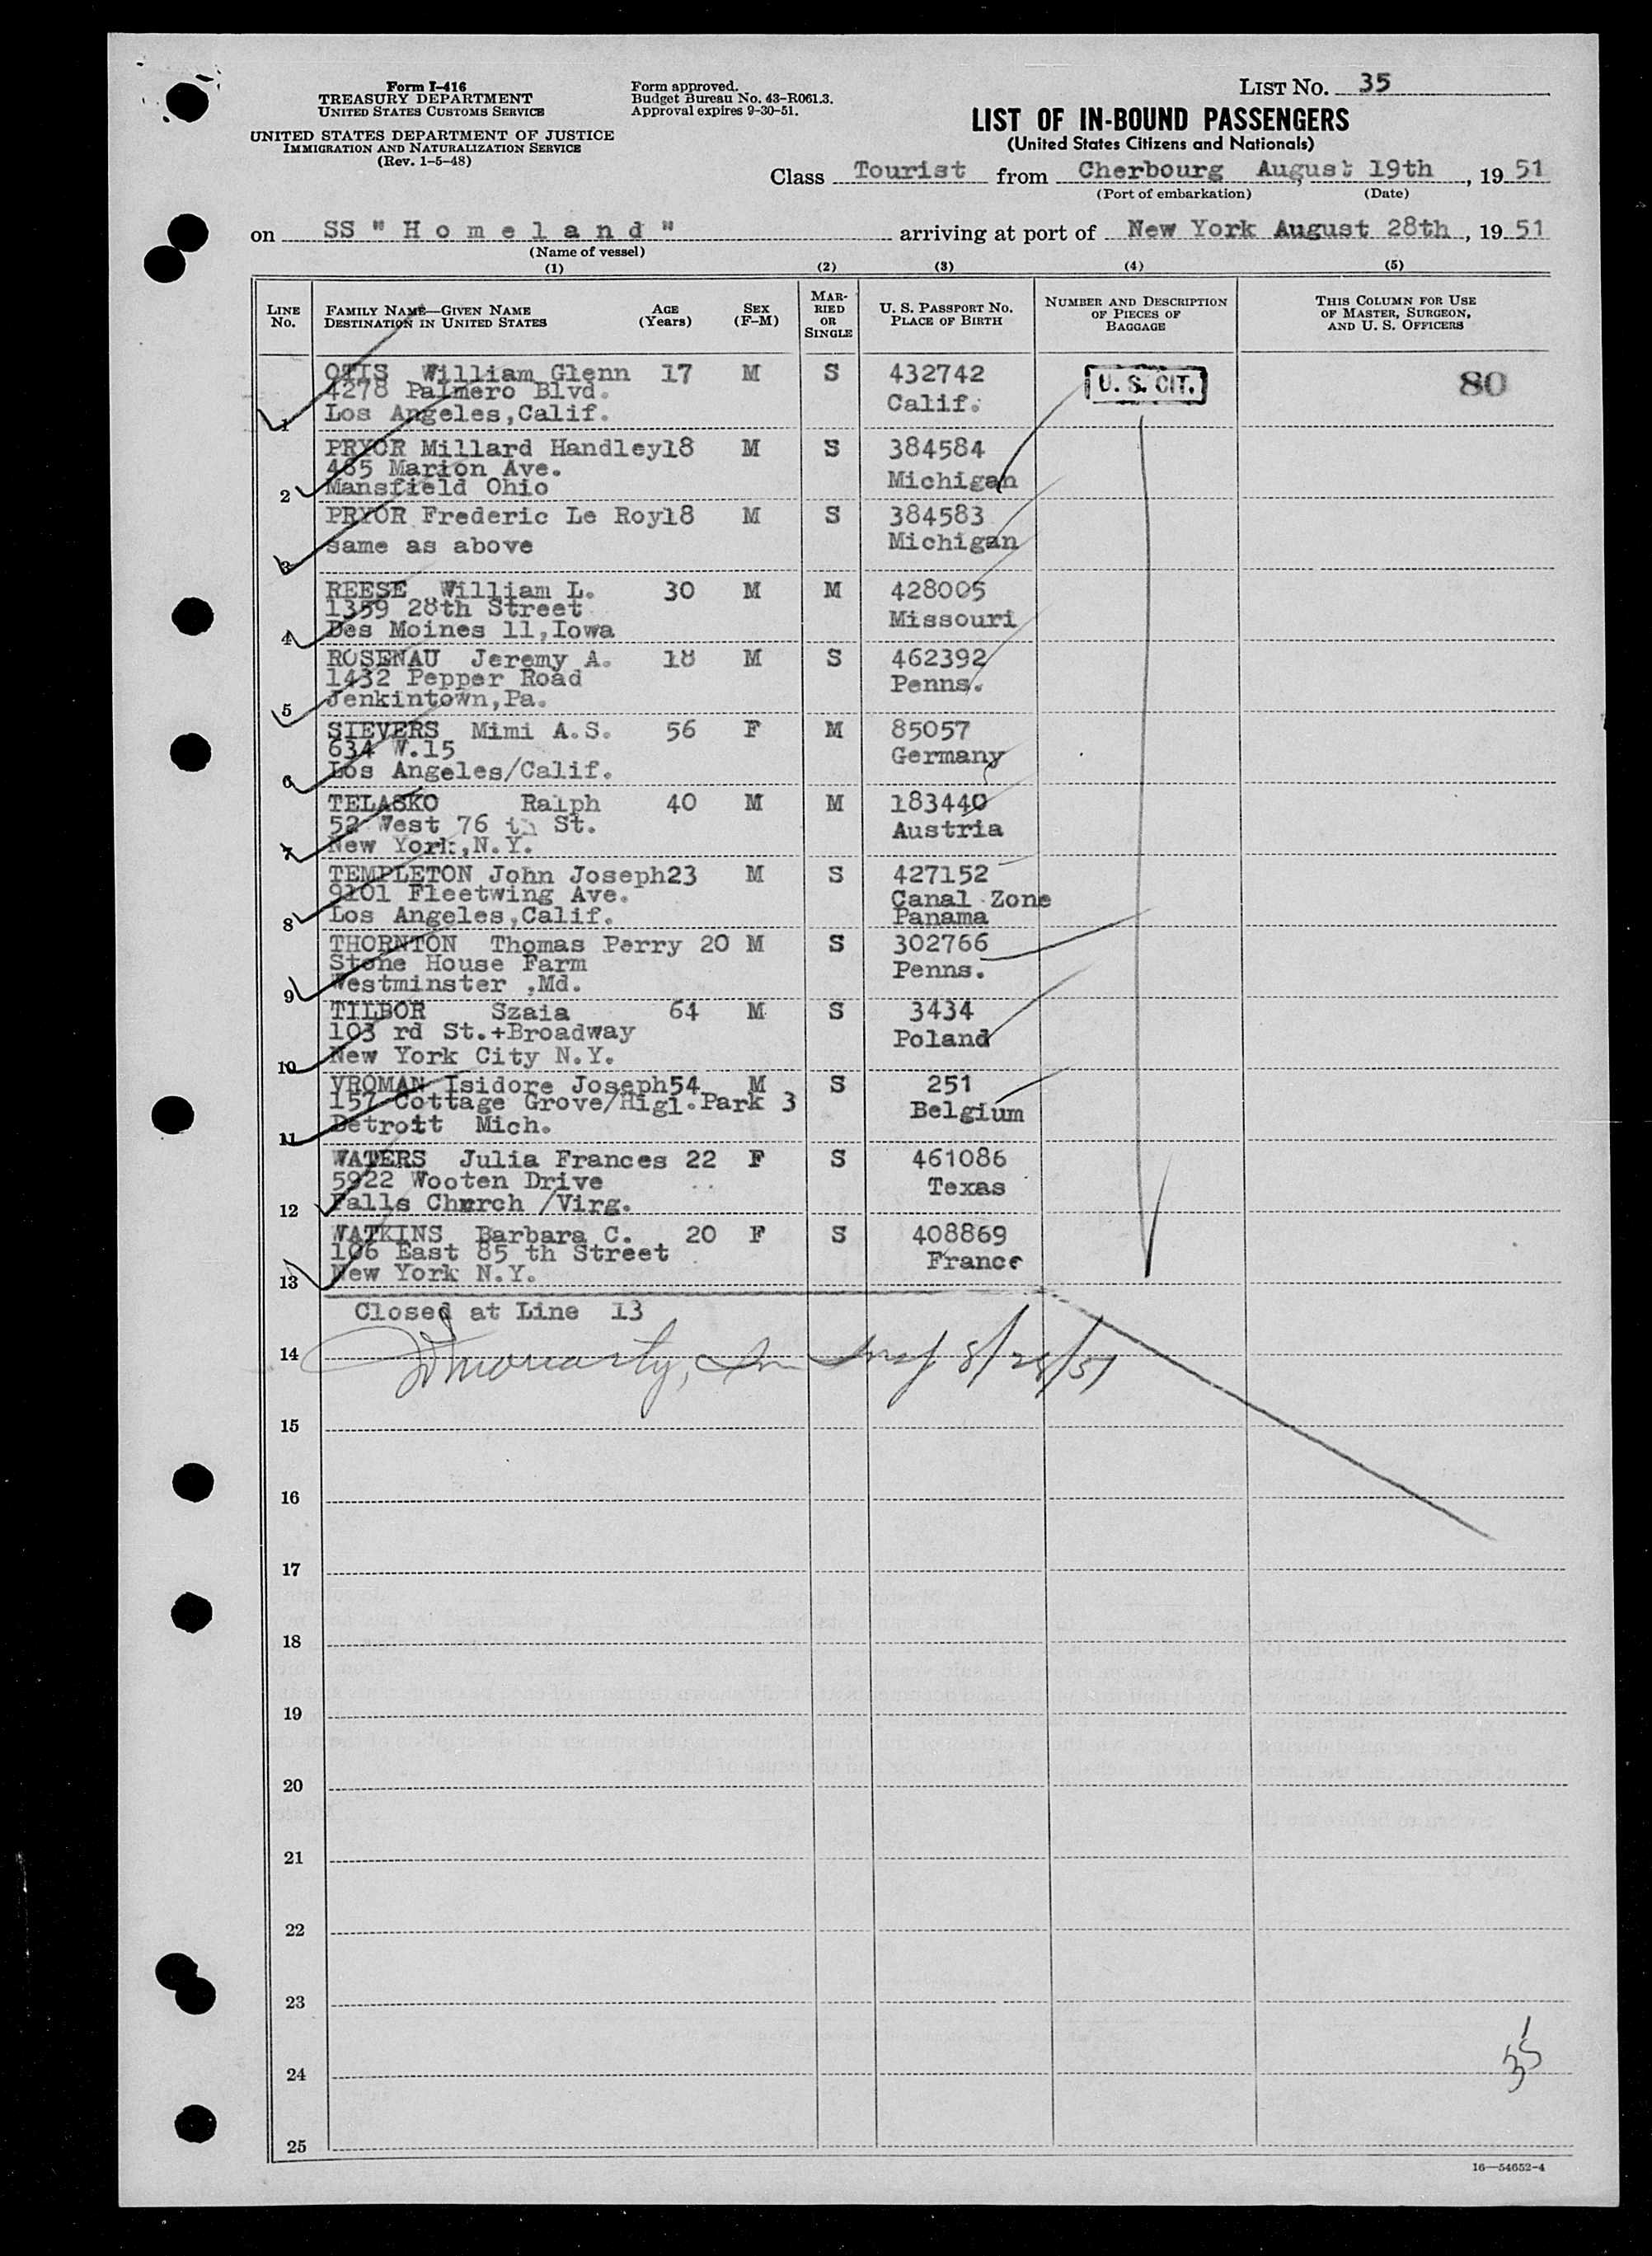 Form I-416
TREASURY DEPARTMENT
UNITED STATES CUSTOMS SERVICE
UNITED STATES DEPARTMENT OF JUSTICE
IMMIGRATION AND NATURALIZATION SERVICE
(Rev. 1-5-48)
Form approved.
Budget Bureau No. 43-R061.3.
Approval expires 9-30-51.
LIST NO. 35
LIST OF IN-BOUND PASSENGERS
(United States Citizens and Nationals)
Class Tourist from Cherbourg August 19th, 19 51
(Port of embarkation) (Date)
on SS "Homeland" arriving at port of New York August 28th, 19 51
(Name of vessel)
(1) (2) (3) (4) (5)
LINE NO.
FAMILY NAME—GIVEN NAME
DESTINATION IN UNITED STATES
AGE (Years)
SEX (F-M)
MARRIED OR SINGLE
U. S. PASSPORT NO.
PLACE OF BIRTH
NUMBER AND DESCRIPTION OF PIECES OF BAGGAGE
THIS COLUMN FOR USE OF MASTER, SURGEON, AND U. S. OFFICERS
OTIS William Glenn 17 M S 432742 U. S. CIT. 80
4278 Palmero Blvd. Calif.
1 Los Angeles,Calif.
PRYOR Millard Handley18 M S 384584
465 Marion Ave. Michigan
2 Mansfield Ohio
PRYOR Frederic Le Roy18 M S 384583
same as above Michigan
3
REESE William L. 30 M M 428005
1359 28th Street Missouri
4 Des Moines 11,Iowa
ROSENAU Jeremy A. 18 M S 462392
1432 Pepper Road Penns.
5 Jenkintown,Pa.
SIEVERS Mimi A.S. 56 F M 85057
634 W.15 Germany
6 Los Angeles/Calif.
TELASKO Ralph 40 M M 183440
52 West 76 th St. Austria
7 New York,N.Y.
TEMPLETON John Joseph23 M S 427152
9101 Fleetwing Ave. Canal Zone
8 Los Angeles,Calif. Panama
THORNTON Thomas Perry 20 M S 302766
Stone House Farm Penns.
9 Westminster ,Md.
TILBOR Szaia 64 M S 3434
103 rd St.+Broadway Poland
10 New York City N.Y.
VROMAN Isidore Joseph54 M S 251
157 Cottage Grove/Higl.Park 3 Belgium
11 Detroit Mich.
WATERS Julia Frances 22 F S 461086
5922 Wooten Drive Texas
12 Falls Church /Virg.
WATKINS Barbara C. 20 F S 408869
106 East 85 th Street France
13 New York N.Y.
Closed at Line 13
14 8/28/51
15
16
17
18
19
20
21
22
23
24
35
25
16—54652-4